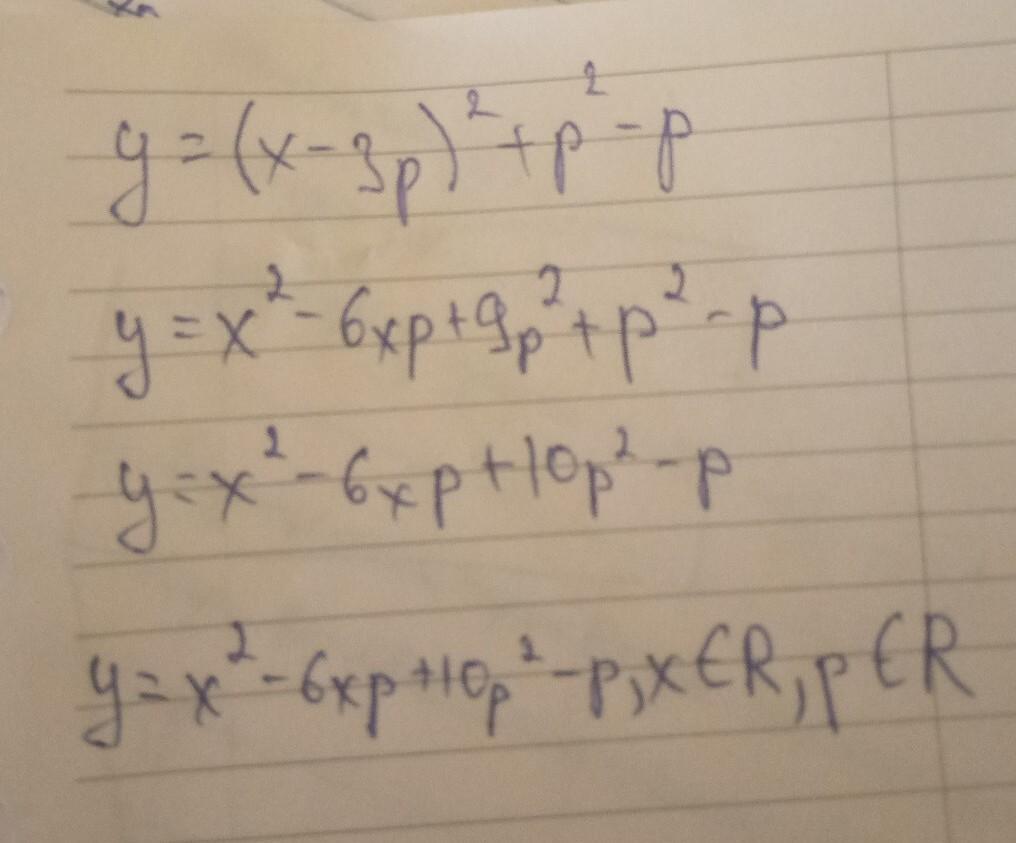 y = (x - 3p)² + p² - p
y = x² - 6xp + 9p² + p² - p
y = x² - 6xp + 10p² - p
y = x² - 6xp + 10p² - p, x ∈ R, p ∈ R